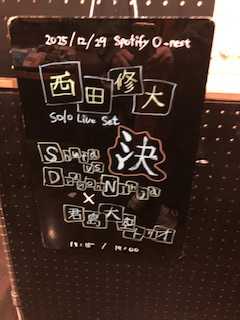 2025/12/29 Spotify O-nest
西田修大
Solo Live Set
決
Shuta vs
DragonNinja
×
君島大空トリオ
18:15 / 19:00